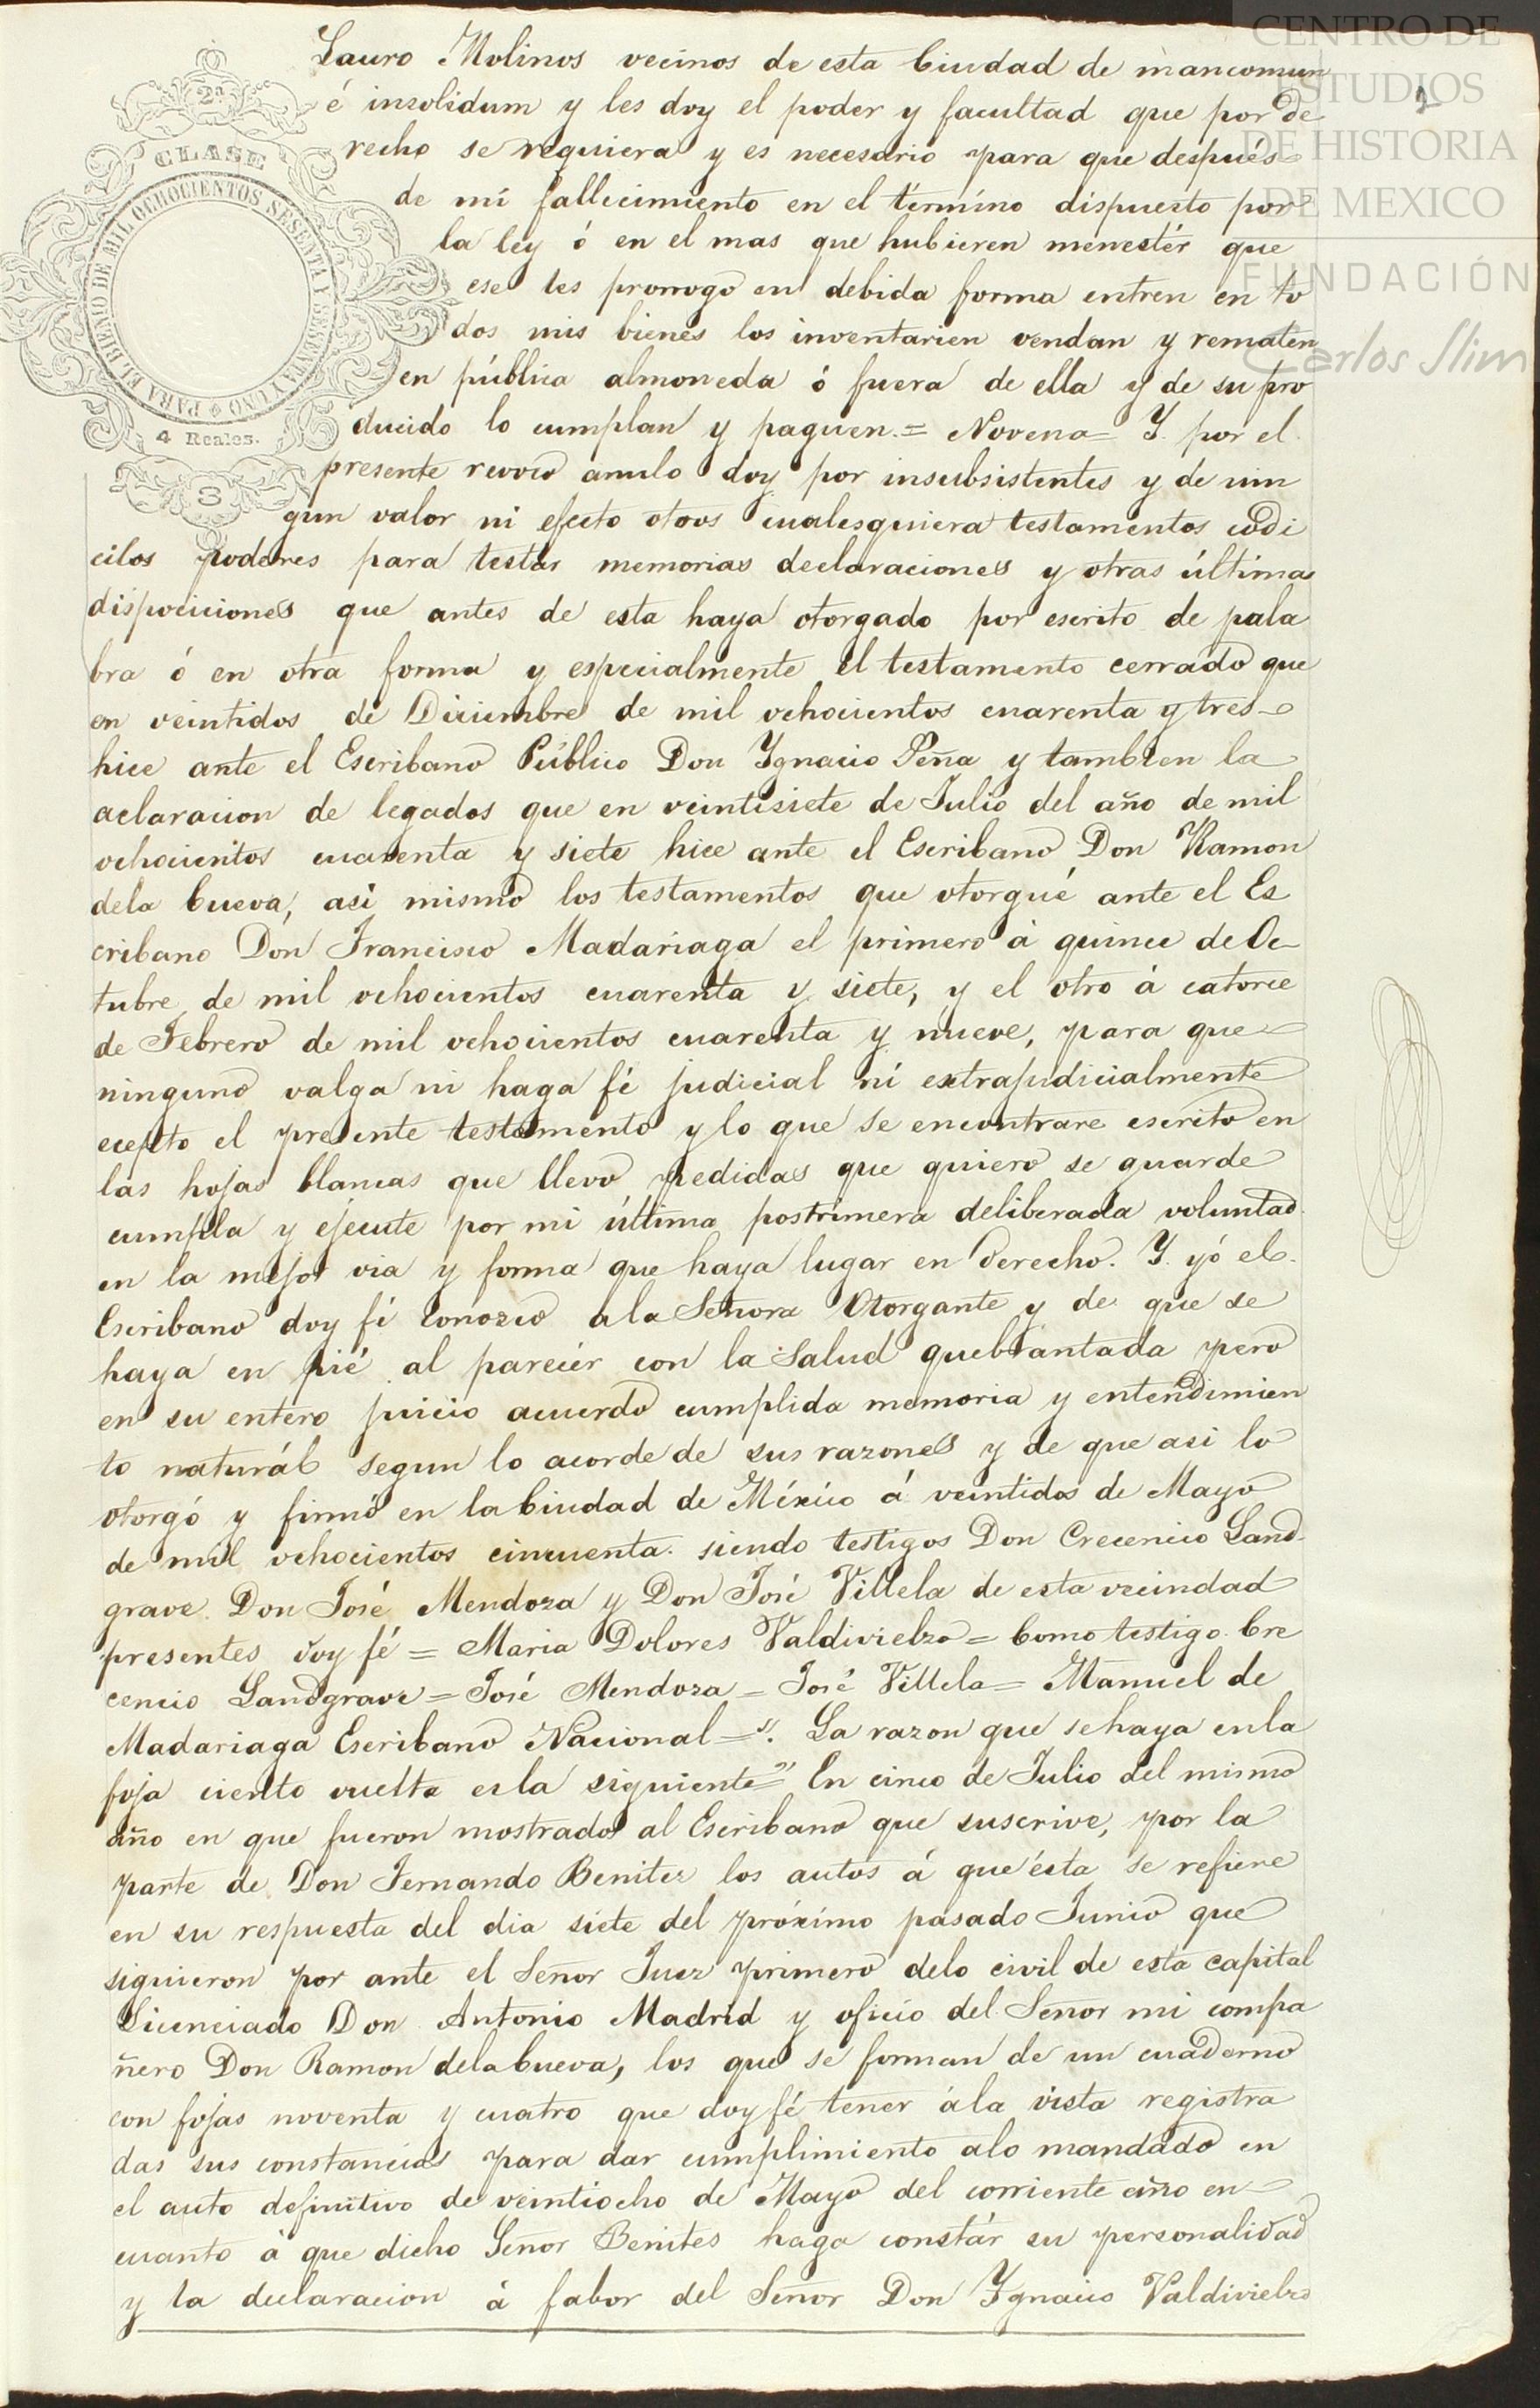 CENTRO DE
ESTUDIOS
DE HISTORIA
DE MEXICO
FUNDACIÓN
Carlos Slim
2
2a
CLASE
PARA EL BIENIO DE MIL OCHOCIENTOS SESENTA Y SESENTA Y UNO
4 Reales.
8
Lauro Molinos vecinos de esta Ciudad de mancomun
é insolidum y les doy el poder y facultad que por de
recho se requiera y es necesario para que después
de mi fallecimiento en el término dispuesto por
la ley ó en el mas que hubieren menestér que
ese les prorrogo en debida forma entren en to
dos mis bienes los inventarien vendan y rematen
en pública almoneda ó fuera de ella y de su pro
ducido lo cumplan y paguen.= Novena= Y. por el
presente revoco anulo doy por insubsistentes y de nin
gun valor ni efecto otros cualesquiera testamentos codi
cilos poderes para testar memorias declaraciones y otras últimas
dispociciones que antes de esta haya otorgado por escrito de pala
bra ó en otra forma y especialmente el testamento cerrado que
en veintidos de Diciembre de mil ochocientos cuarenta y tres
hice ante el Escribano Público Don Ygnacio Peña y tambien la
aclaracion de legados que en veintisiete de Julio del año de mil
ochocientos cuarenta y siete hice ante el Escribano Don Ramon
dela Cueva, asi mismo los testamentos que otorgué ante el Es
cribano Don Francisco Madariaga el primero á quince de Oc-
tubre de mil ochocientos cuarenta y siete, y el otro á catorce
de Febrero de mil ochocientos cuarenta y nueve, para que
ninguno valga ni haga fé judicial ni extrajudicialmente
ecepto el presente testamento y lo que se encontrare escrito en
las hojas blancas que llevo pedidas que quiero se guarde
cumpla y ejecute por mi última postrimera deliberada voluntad
en la mejor via y forma que haya lugar en derecho. Y. yó el
Escribano doy fé conozco ala Señora Otorgante y de que se
haya en pié al parecér con la salud quebrantada pero
en su entero juicio acuerdo cumplida memoria y entendimien
to naturál segun lo acorde de sus razones y de que asi lo
otorgó y firmó en la Ciudad de México á veintidos de Mayo
de mil ochocientos cincuenta. siendo testigos Don Crecencio Land-
grave Don José Mendoza y Don José Villela de esta vecindad
presentes doy fé = Maria Dolores Valdivielso = Como testigo Cre
cencio Landgrave = José Mendoza = José Villela = Manuel de
Madariaga Escribano Nacional =". La razon que sehaya enla
foja ciento vuelta esla siguiente=" En cinco de Julio del mismo
año en que fueron mostrados al Escribano que suscrive, por la
parte de Don Fernando Benitez los autos á que ésta se refiere
en su respuesta del dia siete del próximo pasado Junio que
siguieron por ante el Señor Juez primero delo civil de esta capital
Licenciado Don Antonio Madrid y oficio del Señor mi compa
ñero Don Ramon dela Cueva, los que se forman de un cuaderno
con fojas noventa y cuatro que doy fé tener ála vista registra
das sus constancias para dar cumplimiento alo mandado en
el auto definitivo de veintiocho de Mayo del corriente año en
cuanto á que dicho Señor Benites haga constár su personalidad
y la declaracion á fabor del Señor Don Ygnacio Valdivielso